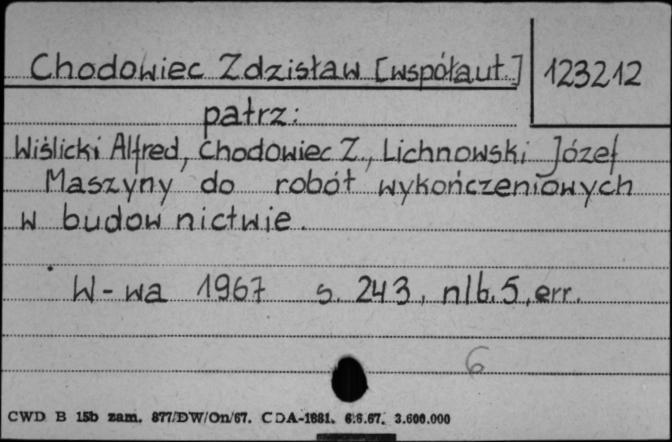 Chodowiec Zdzisław [współaut.] 123212
patrz:
Wiślicki Alfred, Chodowiec Z., Lichnowski Józef
Maszyny do robót wykończeniowych
w budownictwie.
W-wa 1967 s. 243, nlb. 5, err.
6
CWD B 15b zam. 877/DW/On/67. CDA-1881. 6.6.67. 3.600.000